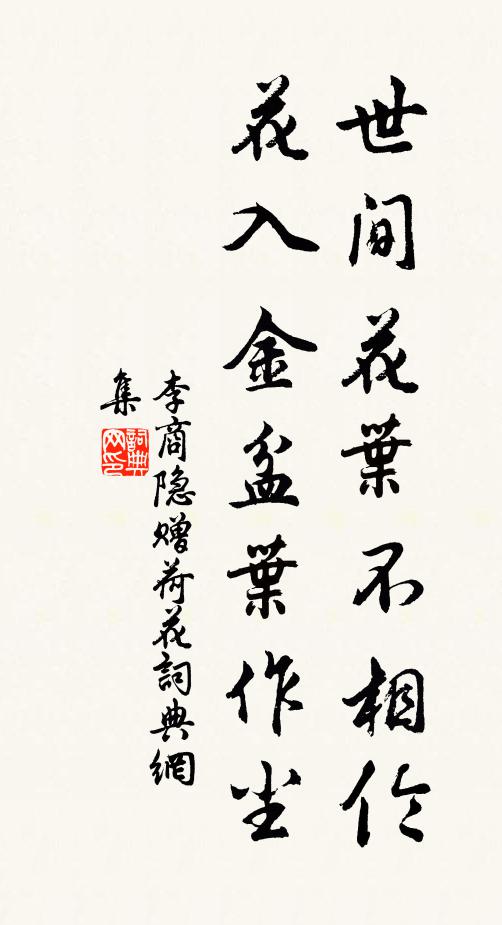 世间花葉不相伦
花入金盆葉作尘
李商隐赠荷花詞典網
集
詞典
网印